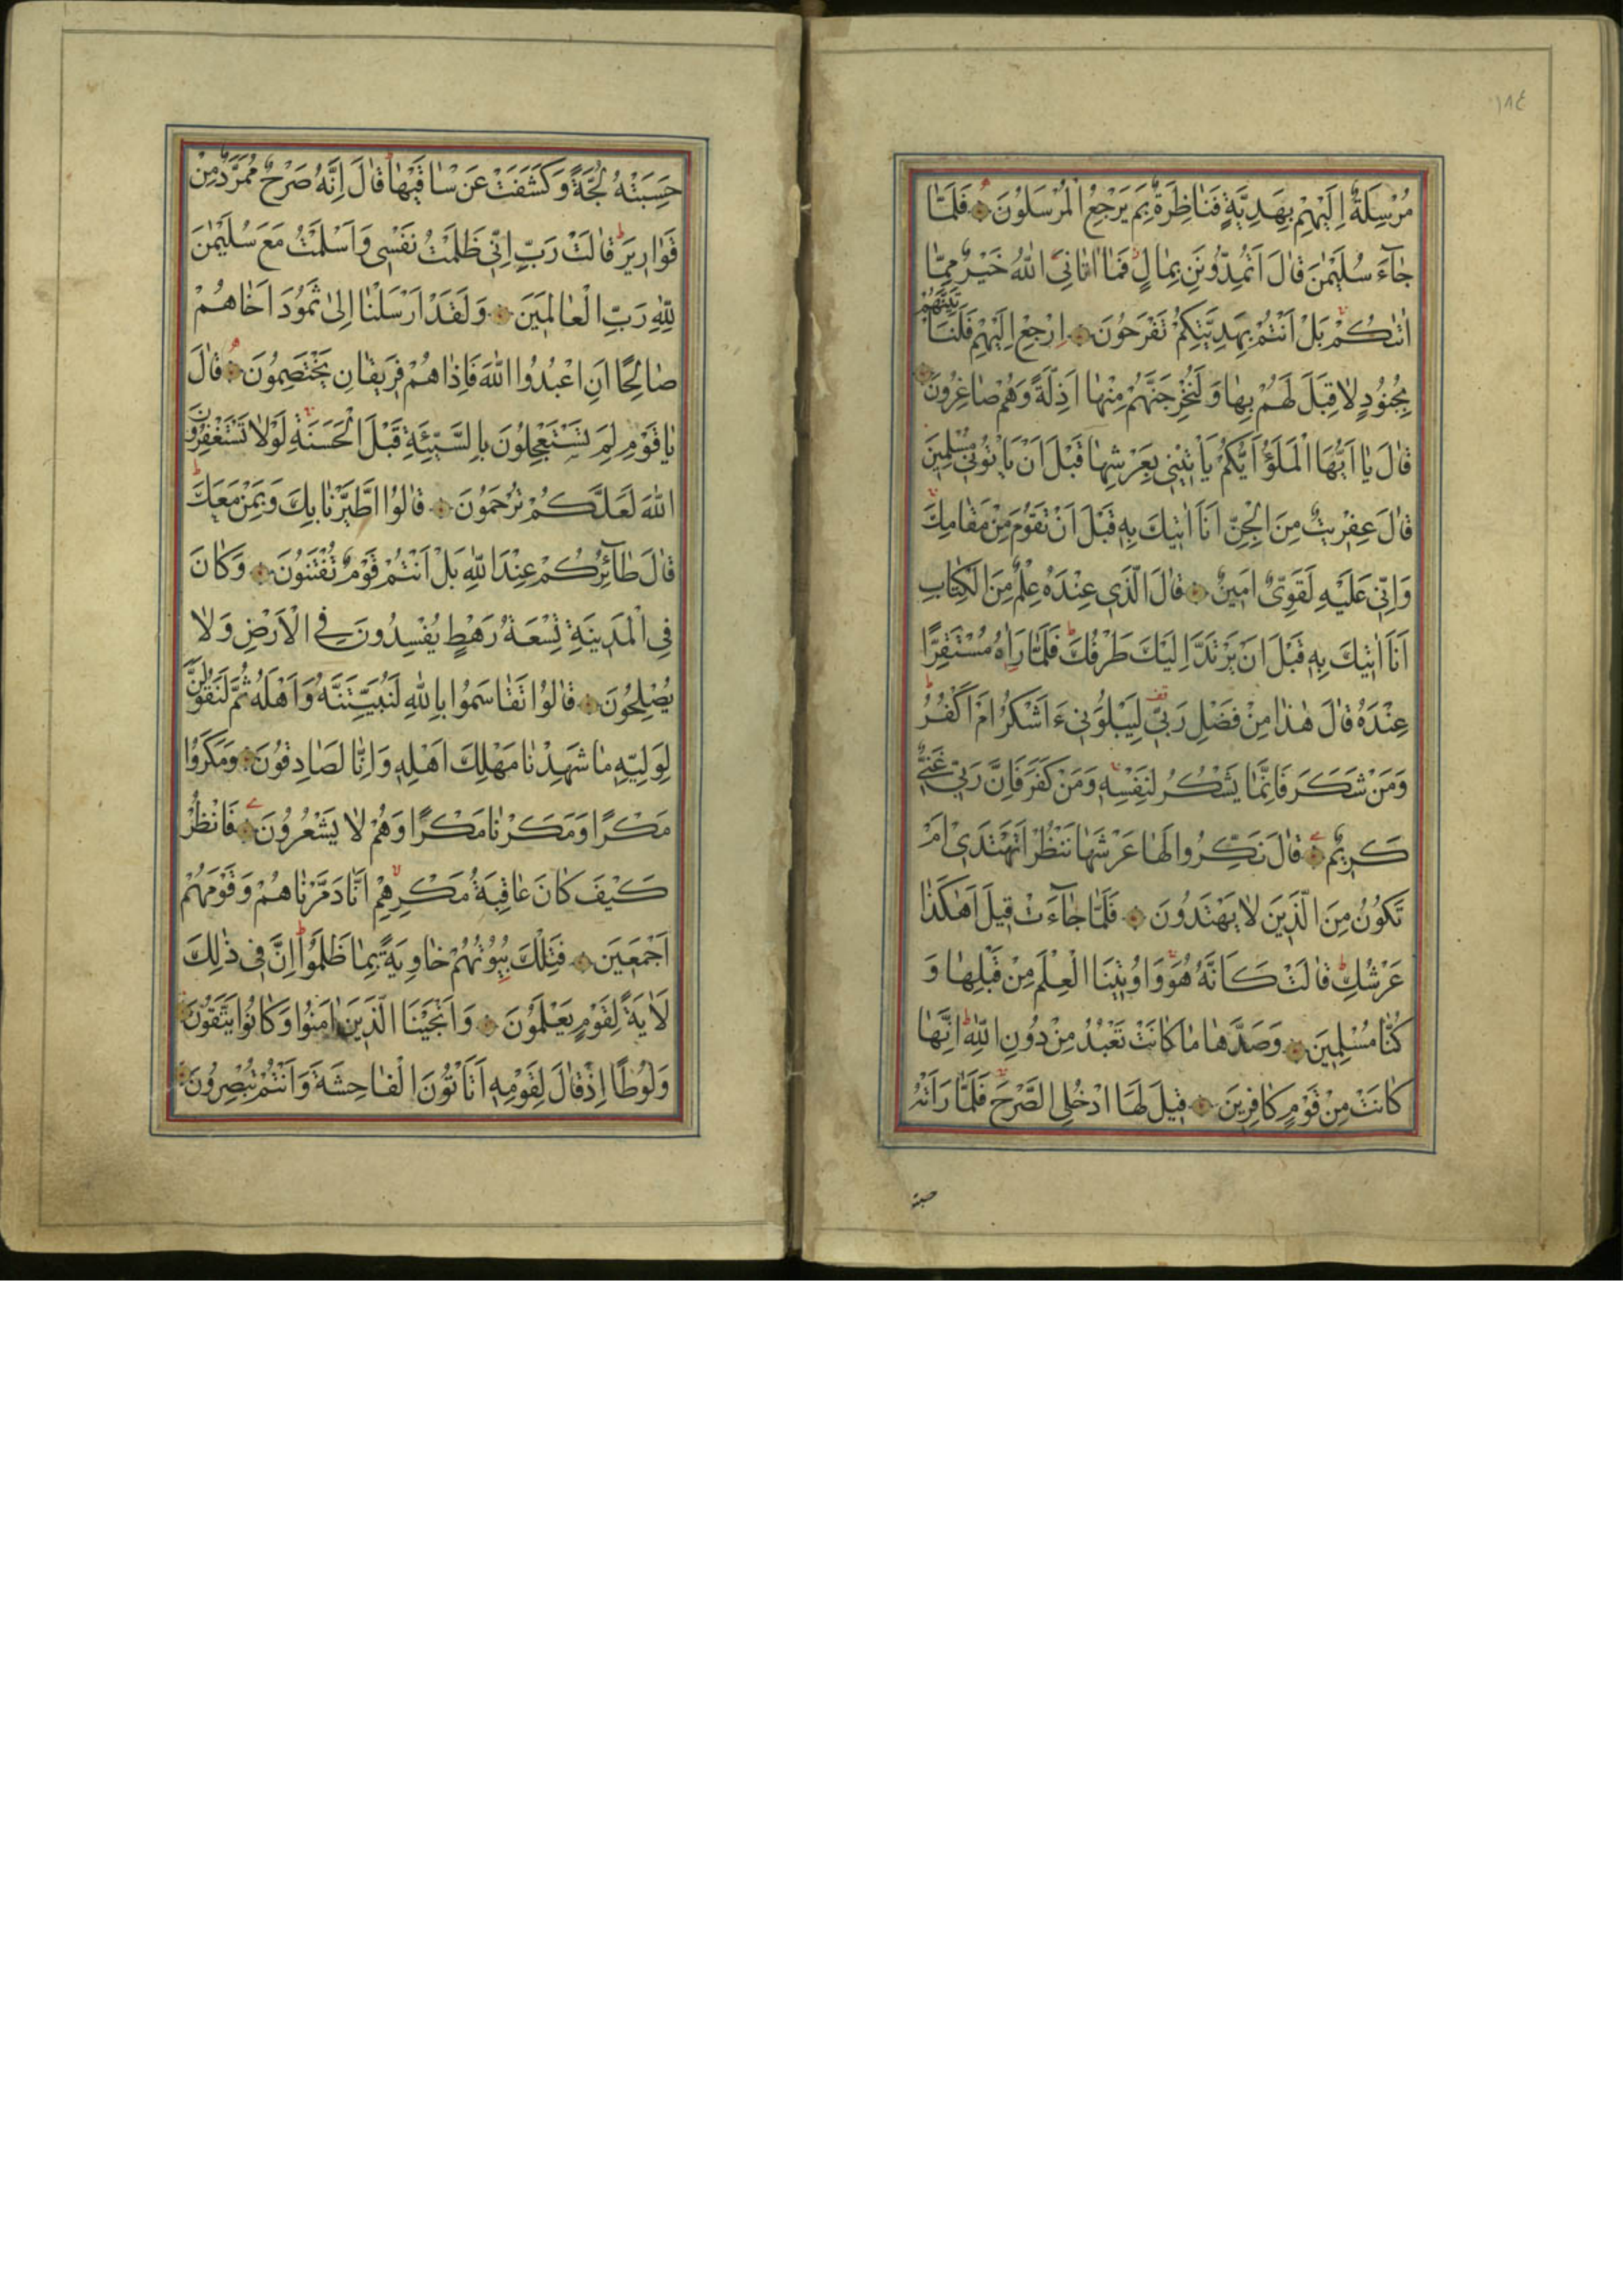 ١٨٤
مُرْسِلَةٌ اِلَيْهِمْ بِهَدِيَّةٍ فَنَاظِرَةٌ بِمَ يَرْجِعُ الْمُرْسَلُونَ فَلَمَّا
جَآءَ سُلَيْمٰنَ قَالَ اَتُمِدُّونَنِ بِمَالٍ فَمَا اٰتَانِىَ اللّٰهُ خَيْرٌ مِمَّا
اٰتٰىكُمْ بَلْ اَنْتُمْ بِهَدِيَّتِكُمْ تَفْرَحُونَ اِرْجِعْ اِلَيْهِمْ فَلَنَأْتِيَنَّهُمْ
بِجُنُودٍ لَا قِبَلَ لَهُمْ بِهَا وَلَنُخْرِجَنَّهُمْ مِنْهَا اَذِلَّةً وَهُمْ صَاغِرُونَ
قَالَ يَا اَيُّهَا الْمَلَؤُا اَيُّكُمْ يَأْتِينِى بِعَرْشِهَا قَبْلَ اَنْ يَأْتُونِى مُسْلِمِينَ
قَالَ عِفْرِيتٌ مِنَ الْجِنِّ اَنَا اٰتِيكَ بِهِ قَبْلَ اَنْ تَقُومَ مِنْ مَقَامِكَ
وَاِنِّى عَلَيْهِ لَقَوِىٌّ اَمِينٌ قَالَ الَّذِى عِنْدَهُ عِلْمٌ مِنَ الْكِتَابِ
اَنَا اٰتِيكَ بِهِ قَبْلَ اَنْ يَرْتَدَّ اِلَيْكَ طَرْفُكَ فَلَمَّا رَاٰهُ مُسْتَقِرًّا
عِنْدَهُ قَالَ هٰذَا مِنْ فَضْلِ رَبِّى لِيَبْلُوَنِى ءَاَشْكُرُ اَمْ اَكْفُرُ
وَمَنْ شَكَرَ فَاِنَّمَا يَشْكُرُ لِنَفْسِهِ وَمَنْ كَفَرَ فَاِنَّ رَبِّى غَنِىٌّ
كَرِيمٌ قَالَ نَكِّرُوا لَهَا عَرْشَهَا نَنْظُرْ اَتَهْتَدِى اَمْ
تَكُونُ مِنَ الَّذِينَ لَا يَهْتَدُونَ فَلَمَّا جَآءَتْ قِيلَ اَهٰكَذَا
عَرْشُكِ قَالَتْ كَاَنَّهُ هُوَ وَاُوتِينَا الْعِلْمَ مِنْ قَبْلِهَا وَ
كُنَّا مُسْلِمِينَ وَصَدَّهَا مَا كَانَتْ تَعْبُدُ مِنْ دُونِ اللّٰهِ اِنَّهَا
كَانَتْ مِنْ قَوْمٍ كَافِرِينَ قِيلَ لَهَا ادْخُلِى الصَّرْحَ فَلَمَّا رَاَتْهُ
حسبته
حَسِبَتْهُ لُجَّةً وَكَشَفَتْ عَنْ سَاقَيْهَا قَالَ اِنَّهُ صَرْحٌ مُمَرَّدٌ مِنْ
قَوَارِيرَ قَالَتْ رَبِّ اِنِّى ظَلَمْتُ نَفْسِى وَاَسْلَمْتُ مَعَ سُلَيْمٰنَ
لِلّٰهِ رَبِّ الْعَالَمِينَ وَلَقَدْ اَرْسَلْنَا اِلٰى ثَمُودَ اَخَاهُمْ
صَالِحًا اَنِ اعْبُدُوا اللّٰهَ فَاِذَا هُمْ فَرِيقَانِ يَخْتَصِمُونَ قَالَ
يَا قَوْمِ لِمَ تَسْتَعْجِلُونَ بِالسَّيِّئَةِ قَبْلَ الْحَسَنَةِ لَوْلَا تَسْتَغْفِرُونَ
اللّٰهَ لَعَلَّكُمْ تُرْحَمُونَ قَالُوا اطَّيَّرْنَا بِكَ وَبِمَنْ مَعَكَ
قَالَ طَآئِرُكُمْ عِنْدَ اللّٰهِ بَلْ اَنْتُمْ قَوْمٌ تُفْتَنُونَ وَكَانَ
فِى الْمَدِينَةِ تِسْعَةُ رَهْطٍ يُفْسِدُونَ فِى الْاَرْضِ وَلَا
يُصْلِحُونَ قَالُوا تَقَاسَمُوا بِاللّٰهِ لَنُبَيِّتَنَّهُ وَاَهْلَهُ ثُمَّ لَنَقُولَنَّ
لِوَلِيِّهِ مَا شَهِدْنَا مَهْلِكَ اَهْلِهِ وَاِنَّا لَصَادِقُونَ وَمَكَرُوا
مَكْرًا وَمَكَرْنَا مَكْرًا وَهُمْ لَا يَشْعُرُونَ فَانْظُرْ
كَيْفَ كَانَ عَاقِبَةُ مَكْرِهِمْ اَنَّا دَمَّرْنَاهُمْ وَقَوْمَهُمْ
اَجْمَعِينَ فَتِلْكَ بُيُوتُهُمْ خَاوِيَةً بِمَا ظَلَمُوا اِنَّ فِى ذٰلِكَ
لَاٰيَةً لِقَوْمٍ يَعْلَمُونَ وَاَنْجَيْنَا الَّذِينَ اٰمَنُوا وَكَانُوا يَتَّقُونَ
وَلُوطًا اِذْ قَالَ لِقَوْمِهِ اَتَأْتُونَ الْفَاحِشَةَ وَاَنْتُمْ تُبْصِرُونَ